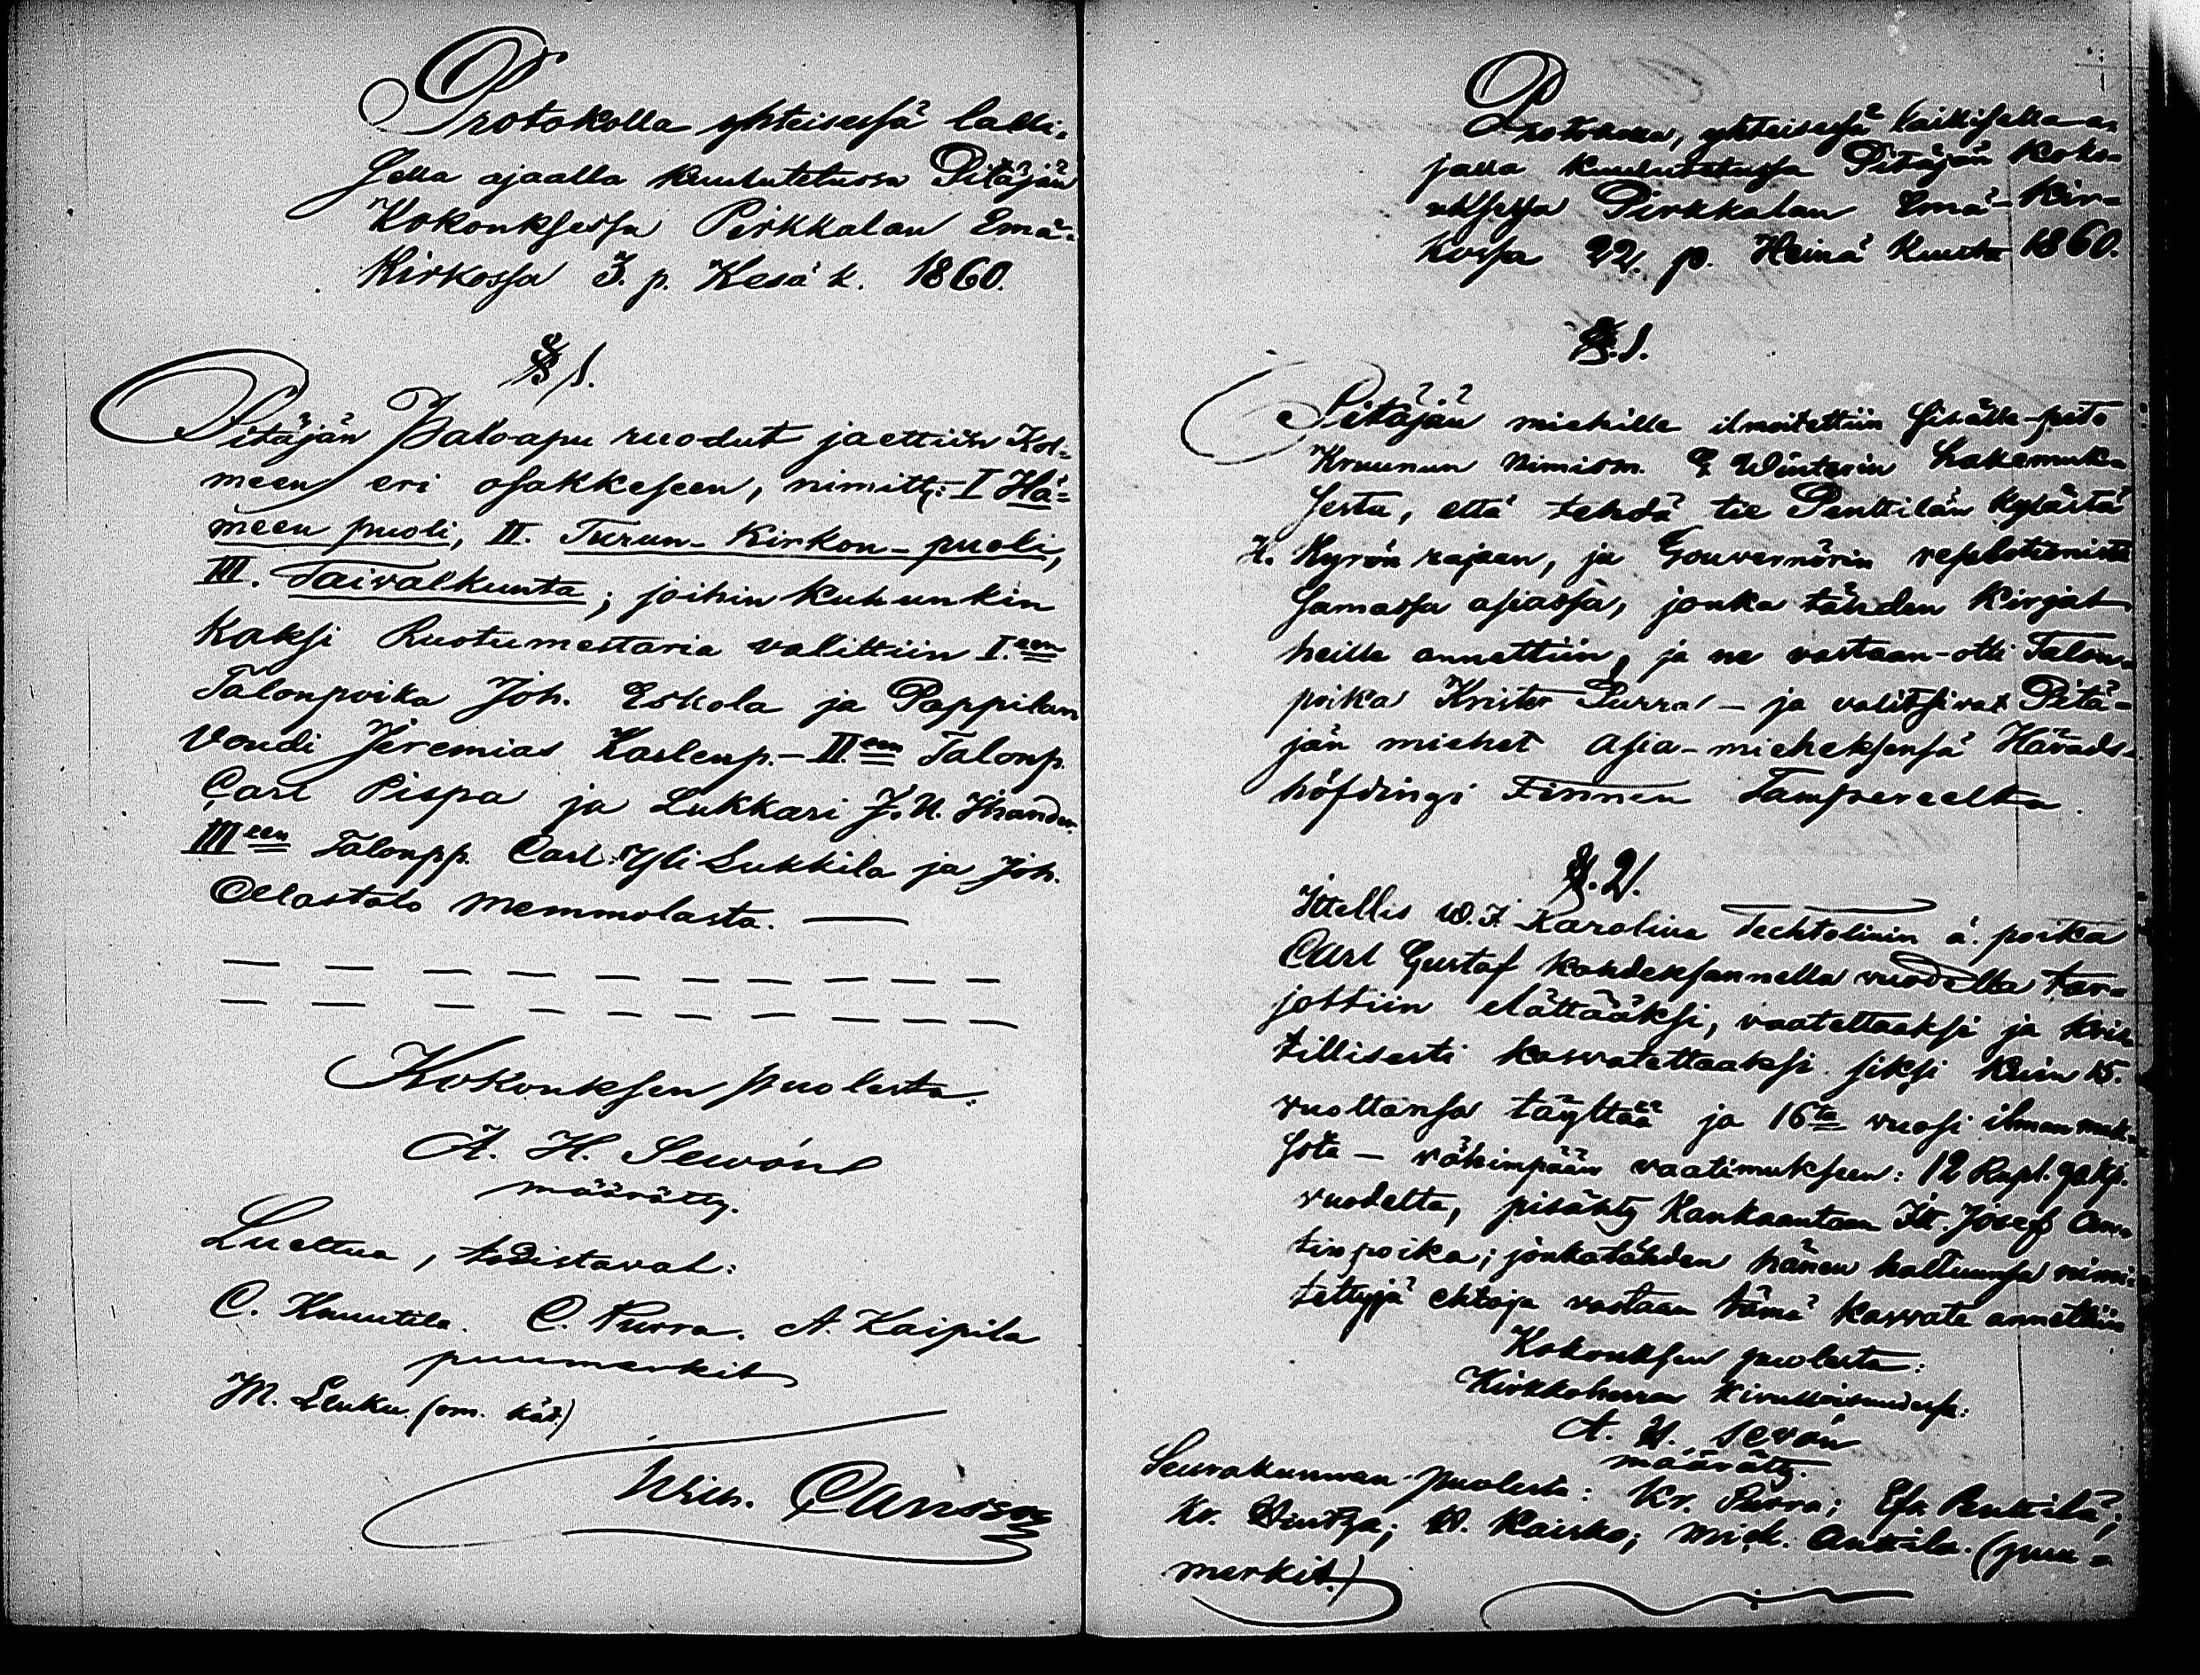 Protokolla yhteisessä lailli-
sella ajaalla kuulutetussa Pitäjän
Kokouksessa Pirkkalan Emä-
Kirkossa 3. p. Kesä k. 1860.
§ 1.
Pitäjän Paloapu ruodut jaettiin Kol-
meen eri osakkeseen, nimitt: I Hä-
meen puoli, II. Turun-Kirkon-puoli,
III. Taivalkunta; joihin kuhunkin
kaksi Ruotumestaria valittiin I.een
Talonpoika Joh. Eskola ja Pappilan
Voudi Jeremias Karlenp. - II.een Talonp.
Carl Pispa ja Lukkari J. H.
III een Talonpp. Carl Yli Lukkila ja Joh.
Ollastalo Memmolasta.
Kokouksen puolesta:
A. H. Sewón
määrätty.
Luettua, todistavat:
C. Knuutila. C. Purra. A. Kaipila
puumerkit
M. Leuku. (om. käs.)
Wilh. Carlsson
Protokolla, yhteisessä laillisella a-
jalla kuulutetussa Pitäjän Koko-
uksessa Pirkkalan Emä-Kir-
kossa 22. p. Heinä Kuuta 1860.
§. 1.
Pitäjän miehille ilmoitettiin sisälle-
Kruunun Nimism. G Winterin hakemuk-
sesta, että tehdä tie Penttilän kylästä
H. Kyrön rajaan, ja Gouvernörin resolutionista
samassa asiassa, jonka tähden kirjat
heille annettiin, ja ne vastaan-otti Talon-
poika Krister Purra - ja valitsivat Pitä-
jän miehet Asia-mieheksensä Härads-
höfdingi Finnen Tampereelta.
§. 2.
Ittellis W. I. Karolina Techtolinin ä. poika
Carl Gustaf kahdeksannella vuodella tar-
jottiin elättääksi, vaatettaaksi ja kris-
tillisesti kasvatettaaksi siksi kuin 15.
vuottansa täyttää ja 16ta vuosi ilman mak-
sota - vähimpään vaatimukseen: 12 Rupl.
vuodelta, pisähty Kankaantaan Itt. Josef An-
tinpoika; jonkatähden hänen haltuunsa nimi-
tettyjä ehtoja vastaan tämä kasvate annettiin
Kokouksen puolesta:
Kirkkoherran
A. H. Sevón
määrätty.
Seurakunnan puolesta: Kr. Purra; Efr. Penttilä;
Kr. H. Kaisko; Mick. Anttila. (puu-
merkit.)